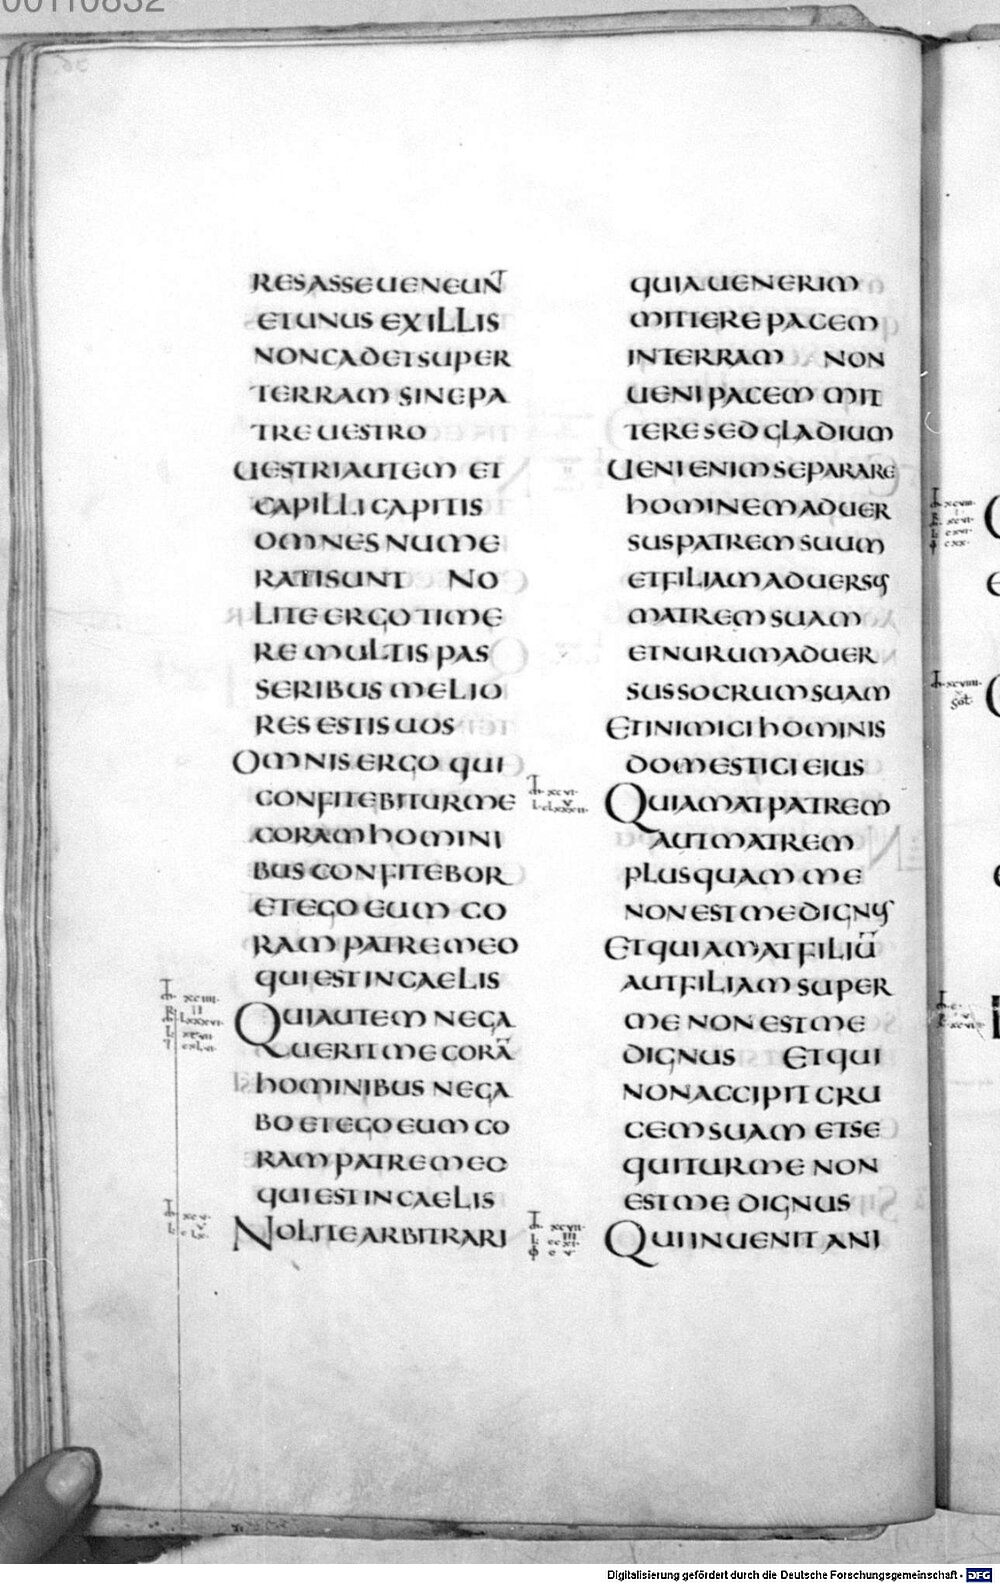 00110832
RESASSEUENEUN̄T
ETUNUS EXILLIS
NONCADETSUPER
TERRAM SINEPA
TRE UESTRO
UESTRIAUTEM ET
CAPILLI CAPITIS
OMNES NUME
RATISUNT NO
LITE ERGOTIME
RE MULTIS PAS
SERIBUS MELIO
RES ESTIS UOS
OMNIS ERGO QUI
CONFITEBITURME
CORAM HOMINI
BUS CONFITEBOR
ETEGO EUM CO
RAM PATREMEO
QUI EST IN CAELIS
QUIAUTEM NEGA
UERIT ME CORĀ
HOMINIBUS NEGA
BO ETEGO EUM CO
RAM PATREMEO
QUI EST IN CAELIS
NOLITE ARBITRARI
QUIA UENERIM
MITTERE PACEM
INTERRAM NON
UENI PACEM MIT
TERE SED GLADIUM
UENI ENIM SEPARARE
HOMINEM ADUER
SUS PATREM SUUM
ET FILIAM ADUERSUS
MATREM SUAM
ET NURUM ADUER
SUS SOCRUM SUAM
ET INIMICI HOMINIS
DOMESTICI EIUS
QUIAMAT PATREM
AUT MATREM
PLUS QUAM ME
NON EST ME DIGNUS
ET QUI AMAT FILIŪ
AUT FILIAM SUPER
ME NON EST ME
DIGNUS ET QUI
NON ACCIPIT CRU
CEM SUAM ET SE
QUITUR ME NON
EST ME DIGNUS
QUI INUENIT ANI
Digitalisierung gefördert durch die Deutsche Forschungsgemeinschaft - DFG